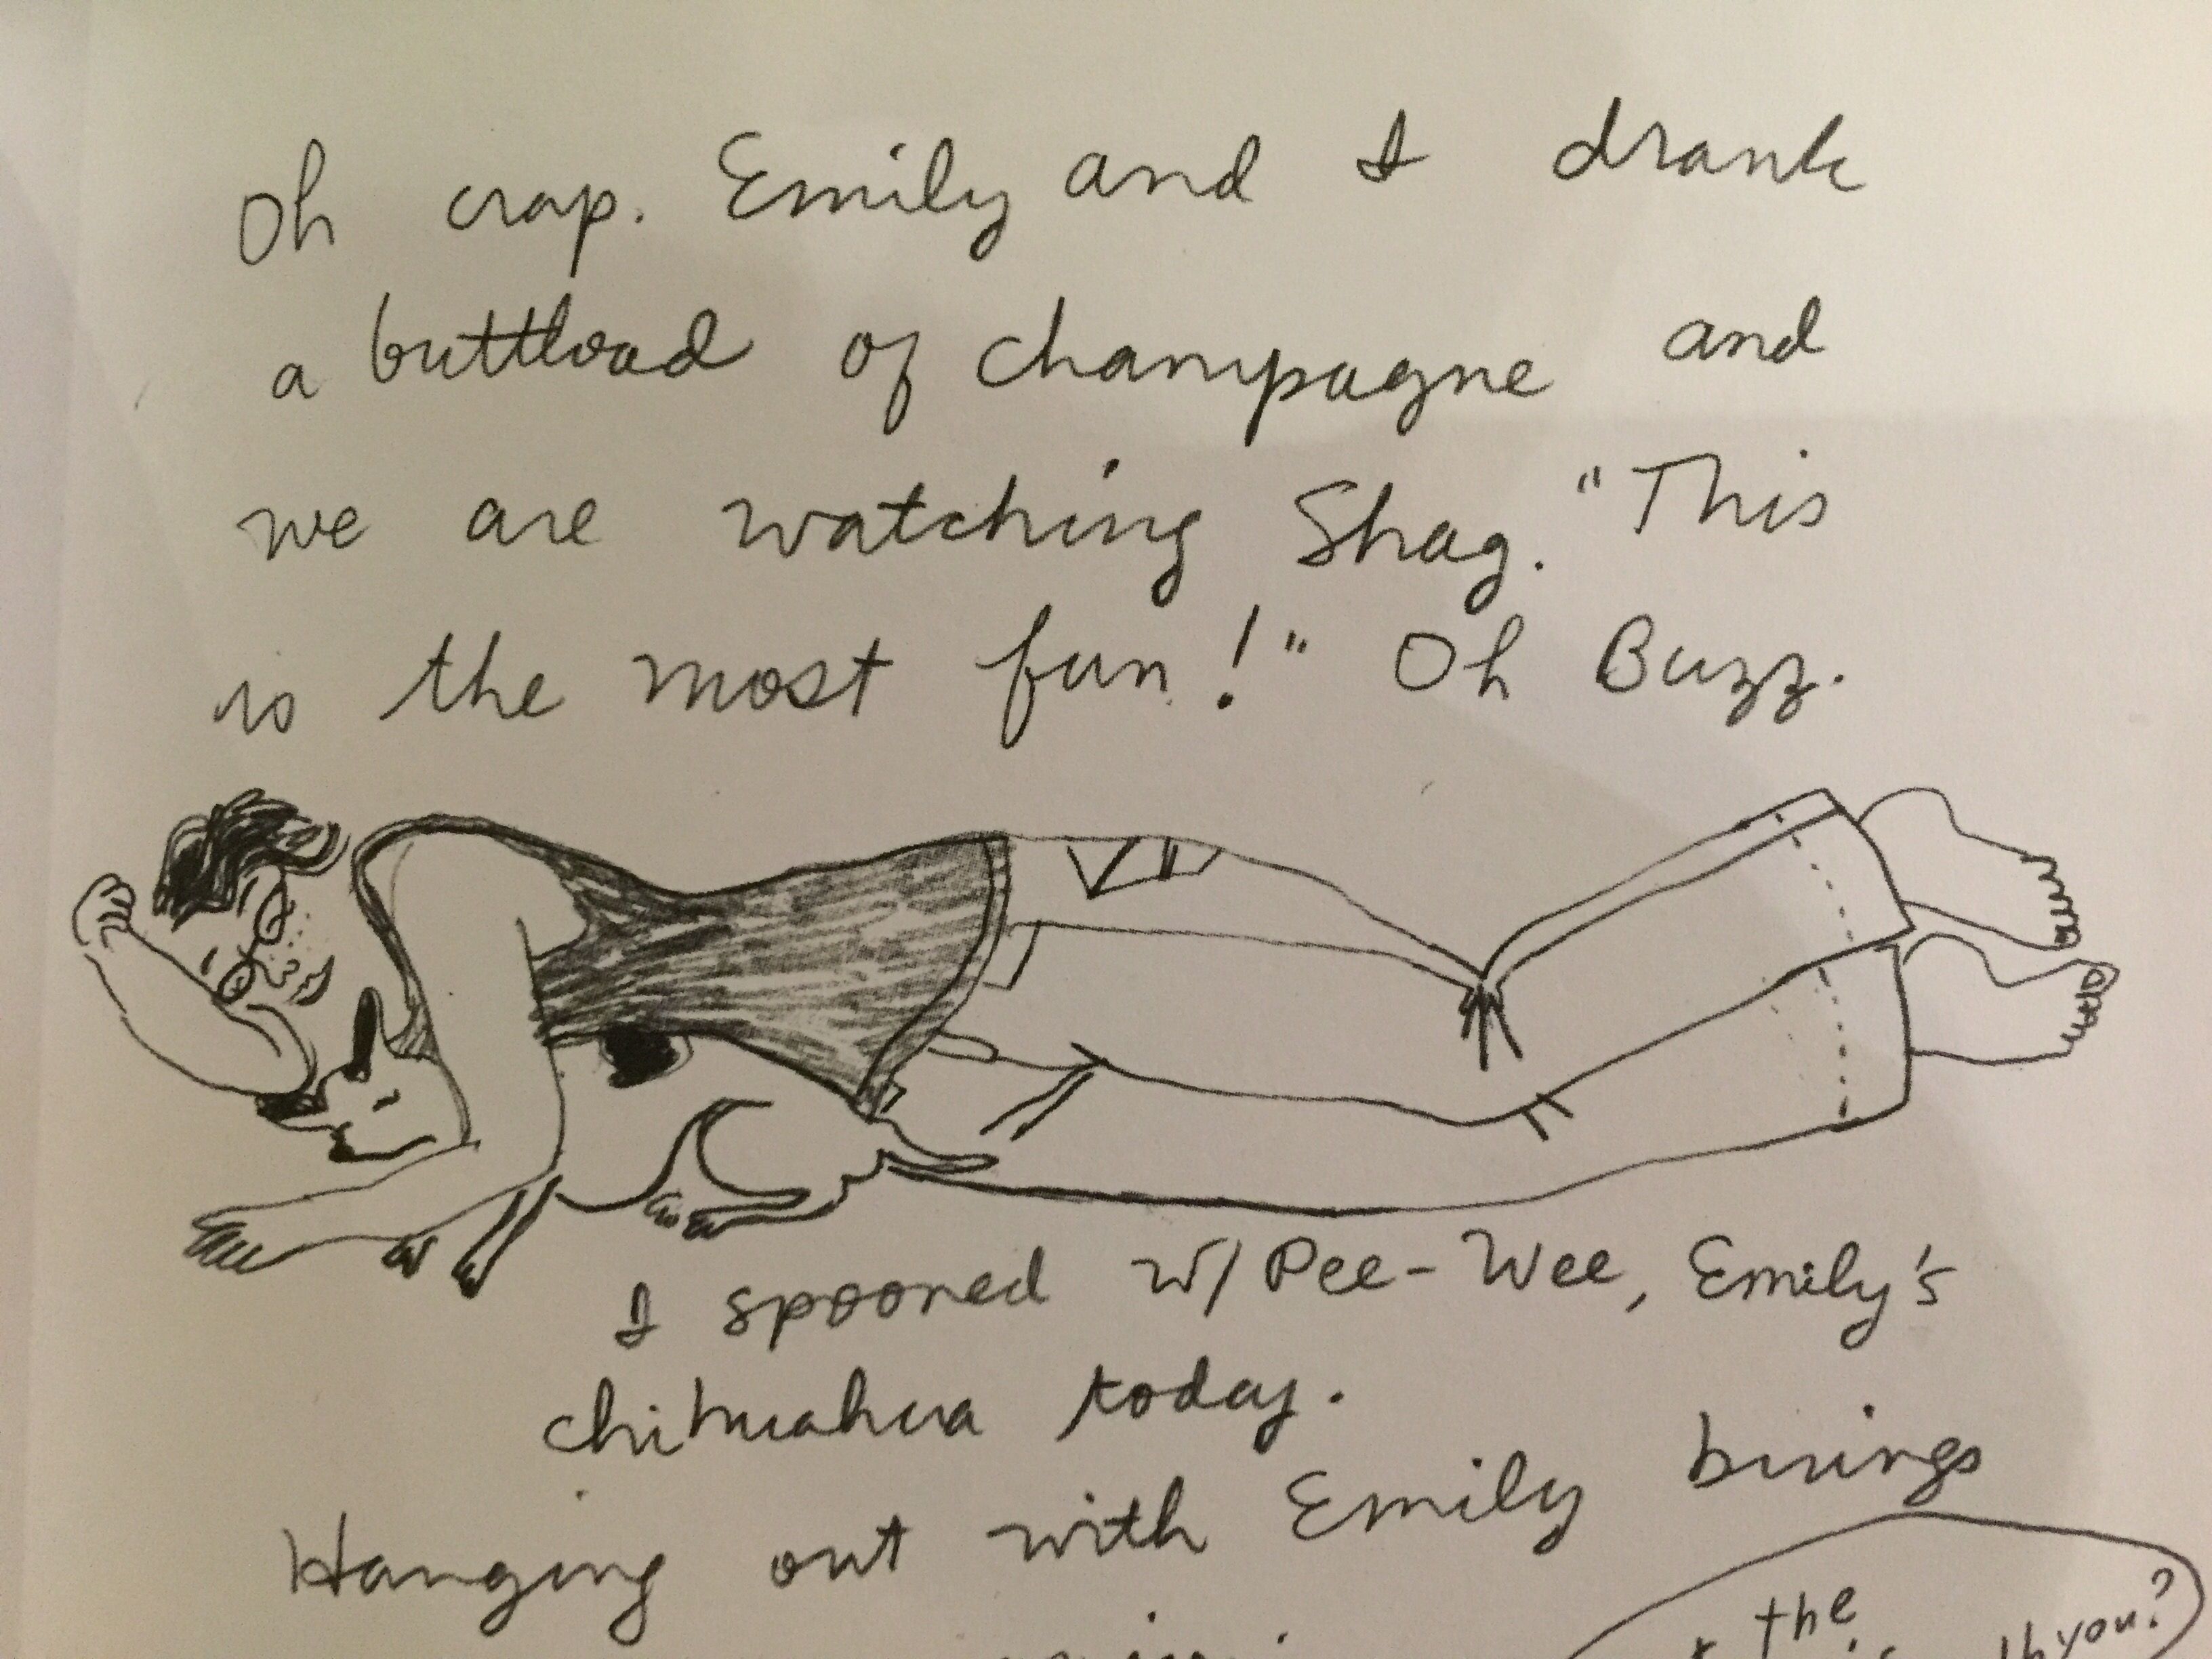 Oh crap. Emily and I drank
a buttload of champagne and
we are watching Shag. "This
is the most fun!" Oh Buzz.
I spooned w/ Pee-Wee, Emily's
chihuahua today.
Hanging out with Emily brings
the
you?